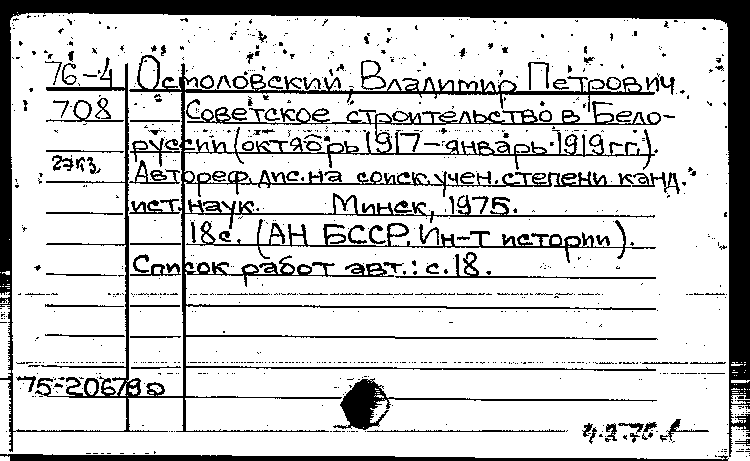 76-4 Остоловский, Владимир Петрович.
708 Советское строительство в Бело-
руссии (октябрь 1917 – январь 1919 гг.).
2 экз. Автореф. дис. на соиск. учен. степени канд.
ист. наук. Минск, 1975.
18 с. (АН БССР. Ин-т истории).
Список работ авт.: с. 18.
75-20678